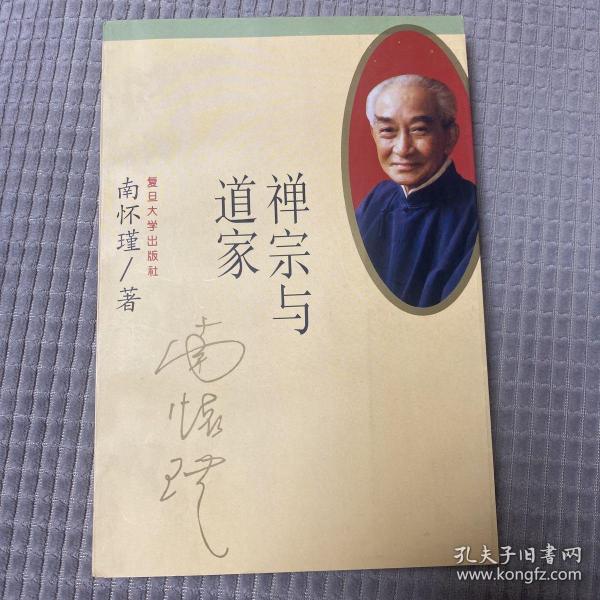 禅宗与
道家
复旦大学出版社
南怀瑾/著
南怀瑾
孔夫子旧书网
www.kongfz.com